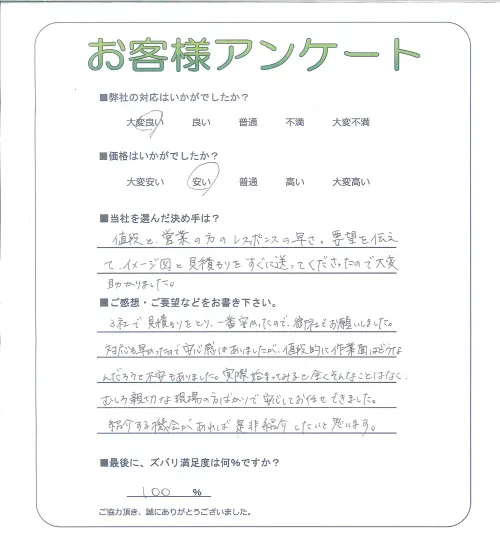 お客様アンケート
■弊社の対応はいかがでしたか？
大変良い 良い 普通 不満 大変不満
■価格はいかがでしたか？
大変安い 安い 普通 高い 大変高い
■当社を選んだ決め手は？
値段と、営業の方のレスポンスの早さ。要望を伝え
て、イメージ図と見積もりをすぐに送ってくださったので大変
助かりました。
■ご感想・ご要望などをお書き下さい。
3社で見積もりをとり、一番安かったので、御社でお願いしました。
対応も早かったので安心感はありましたが、値段的に作業面はどうな
んだろうと不安もありました。実際始まってみると全くそんなことはなく、
むしろ親切な現場の方ばかりで安心してお任せできました。
紹介する機会があれば是非紹介したいと思います。
■最後に、ズバリ満足度は何%ですか？
100 %
ご協力頂き、誠にありがとうございました。